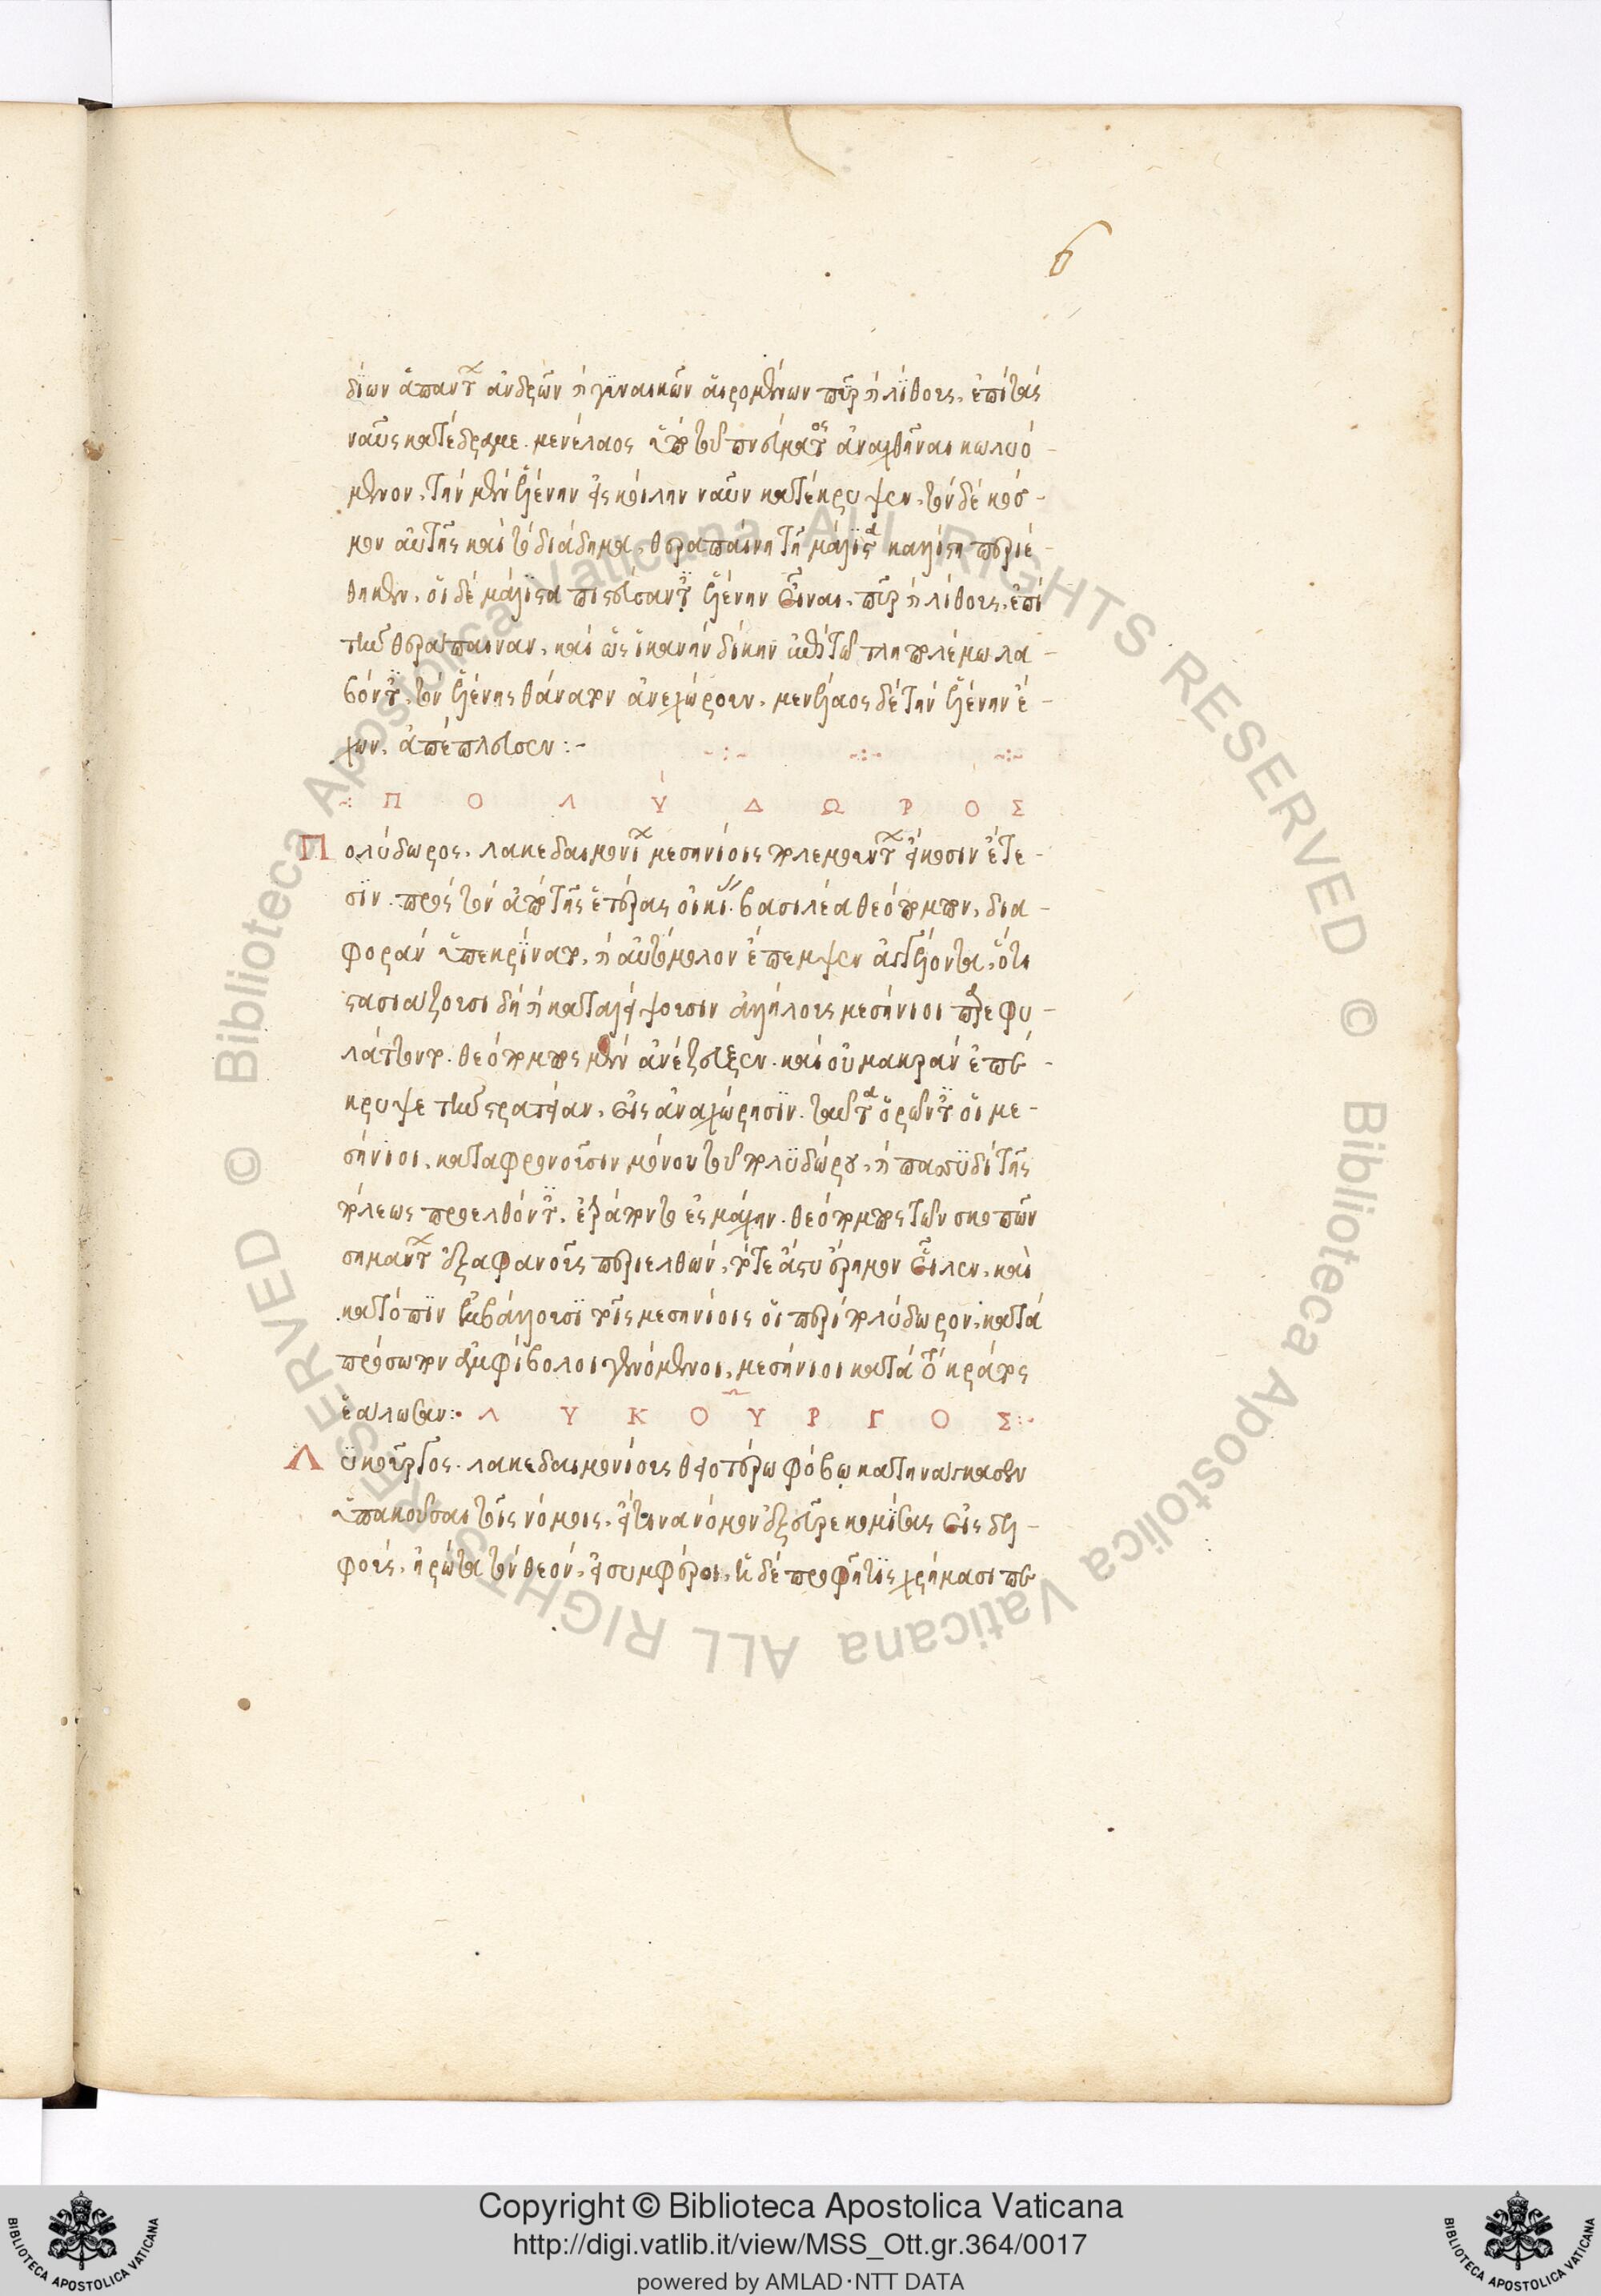 6
δίων ἁπάντων ἀνδρῶν ἢ γυναικῶν αἰρομένων πῦρ ἢ λίθους, ἐπὶ τὰς
ναῦς κατέδραμε. μενέλαος ὑπὸ τοῦ πνεύματος ἀναχθῆναι κωλυό-
μενον, τὴν μὲν ἑλένην ἐς κοίλην ναῦν κατέκρυψεν, τὸν δὲ κόσ-
μον αὐτῆς καὶ τὸ διάδημα, θεραπαίνη τῆ μάλιστα καλίστη περιέ-
θηκεν, οἱ δὲ μάλιστα πιστεύσαντες ἑλένην εἶναι, πῦρ ἢ λίθους, ἐπὶ
τὴν θεράπαιναν, καὶ ὡς ἱκανὴν δίκην ἐπὶ τῶ τληπολέμω λα-
βόντες, τὸν ἑλένης θάνατον ἀνεχώρουν, μενέλαος δὲ τὴν ἑλένην ἔ-
χων, ἀπέπλευσεν :-
-:- -:- -:-
-: Π Ο Λ Ύ Δ Ω Ρ Ο Σ
Πολύδωρος, λακεδαιμονίων μεσηνίοις πολεμούντων εἴκοσιν ἔτε-
σιν. πρὸς τὸν ἀπὸ τῆς ἑτέρας οἰκίας βασιλέα θεόπομπον, δια-
φορὰν ὑπεκρίνατο, ἢ αὐτόμολον ἔπεμψεν ἀγγέλοντα, ὅτι
στασιάζουσι δὴ ἢ καταλείψουσιν ἀλήλους μεσήνιοι παρεφυ-
λάττοντο. θεόπομπος μὲν ἀνέζευξεν. καὶ οὐ μακρὰν ἐπέ-
κρυψε τὴν στρατείαν, εἰς ἀναχώρησιν. ταῦτα ὁρῶντες οἱ με-
σήνιοι, καταφρονοῦσιν μόνου τοῦ πολυδώρου, ἢ πανυδὶ τῆς
πόλεως προελθόντες, ἐτράποντο ἐς μάχην. θεόπομπος τῶν σκοπῶν
σημάντων ἐξ ἀφανοῦς περιελθὼν, τότε ἄστυ ἔρημον εἷλεν, καὶ
κατόπιν ἐμβάλουσι τοῖς μεσηνίοις οἱ περὶ πολύδωρον, κατὰ
πρόσωπον ἀμφίβολοι γενόμενοι, μεσήνιοι κατὰ τὸ κράτος
ἑάλωσαν:. Λ Υ Κ Ο Υ͂ Ρ Γ Ο Σ :.
Λυκοῦργος. λακεδαιμονίους θειοτέρω φόβω κατηνάγκασεν
ὑπακοῦσαι τοῖς νόμοις, εἴ τινα νόμον ἐξεῦρε κομίσας εἰς δελ-
φοὺς, ἠρώτα τὸν θεόν, εἰ συμφέροι, ἡ δὲ προφῆτις χρήμασι πε
Copyright © Biblioteca Apostolica Vaticana
http://digi.vatlib.it/view/MSS_Ott.gr.364/0017
powered by AMLAD·NTT DATA
BIBLIOTECA APOSTOLICA VATICANA
BIBLIOTECA APOSTOLICA VATICANA
© Biblioteca Apostolica Vaticana ALL RIGHTS RESERVED © Biblioteca Apostolica Vaticana ALL RIGHTS RESERVED